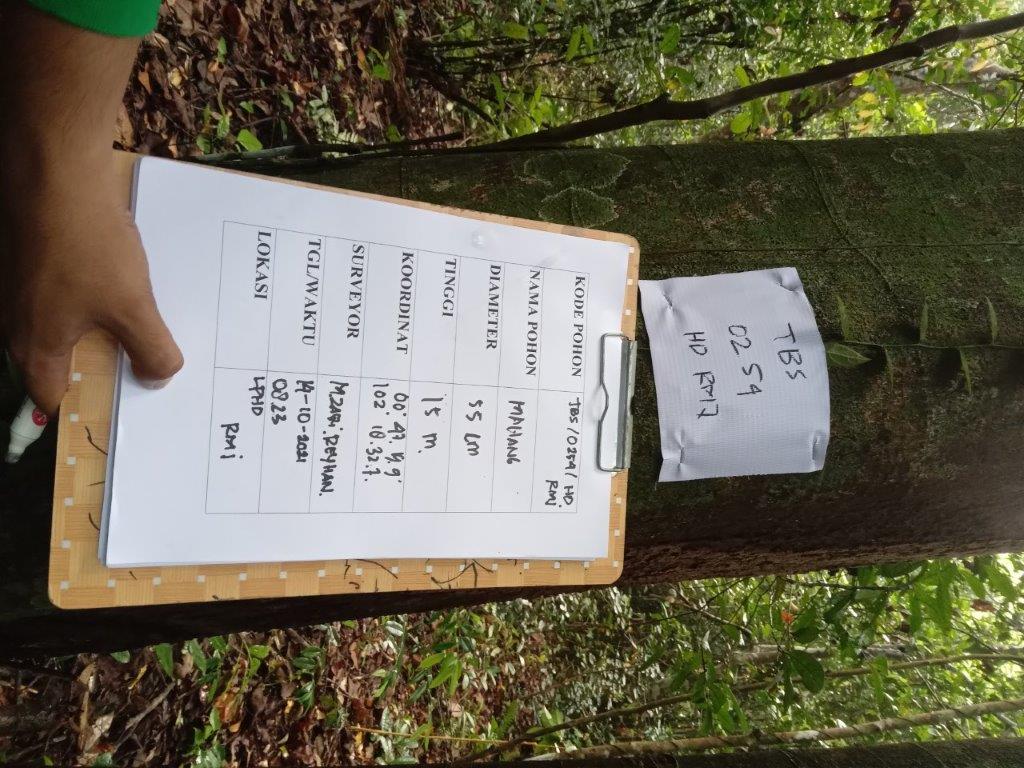 TBS
0254
HD RMJ
KODE POHON TBS/0254/ HD.
RMJ
NAMA POHON MAHANG
DIAMETER 55 cm
TINGGI 15 m.
KOORDINAT 00° 47.
102° 18.32.7.
SURVEYOR REYHAN.
TGL/WAKTU 14-10-2021
0823
LOKASI LPHD
RMj